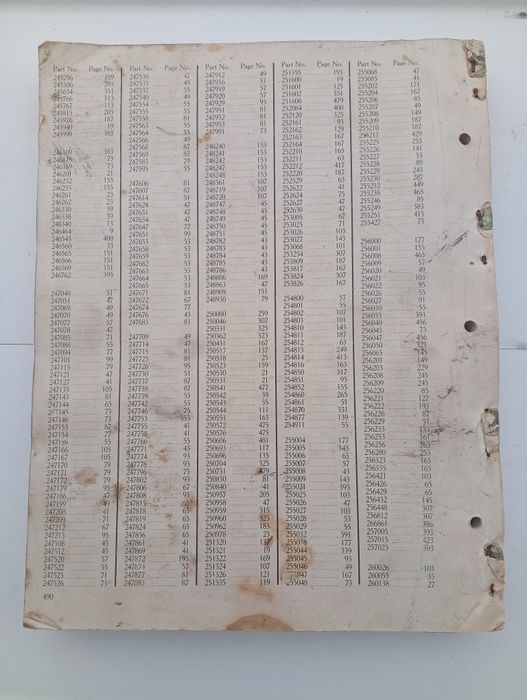 Part No. Page No.
245296 189
245386 293
245654 351
245766 113
245767 113
245815 205
245926 187
245940 19
245999 383
246109 383
246119 73
246169 73
246201 21
246232 155
246233 155
246261 23
246262 23
246330 39
246338 39
246340 13
246464 9
246543 400
246560 33
246565 151
246566 151
246569 151
246762 395
247040 51
247051 47
247069 49
247070 49
247077 57
247078 47
247085 71
247088 55
247094 77
247101 99
247115 79
247121 47
247127 41
247135 105
247143 81
247144 65
247145 73
247146 73
247153 87
247154 77
247159 55
247166 105
247167 105
247170 79
247171 79
247172 79
247179 95
247186 47
247199 47
247208 41
247209 71
247212 67
247213 95
247508 43
247512 45
247520 57
247522 55
247523 71
247526 73
490
Part No. Page No.
247530 47
247535 45
247537 55
247540 49
247554 55
247555 55
247558 81
247563 55
247564 55
247566 49
247568 87
247569 87
247583 79
247595 55
247606 81
247607 87
247614 51
247624 47
247631 47
247634 47
247647 77
247651 99
247653 53
247658 53
247659 53
247662 53
247663 53
247664 53
247665 53
247671 81
247672 67
247676 43
247683 81
247709 49
247714 47
247715 81
247725 81
247726 95
247730 51
247737 87
247738 87
247739 53
247742 53
247746 75
247753 353
247755 41
247758 41
247766 55
247771 45
247774 43
247778 93
247796 75
247802 93
247806 67
247808 93
247815 65
247818 65
247819 67
247824 65
247836 65
247861 41
247869 41
247872 195
247874 57
247877 81
247885 87
Part No. Page No.
247912 49
247916 57
247919 57
247920 57
247929 93
247951 81
247952 81
247953 81
247991 73
248240 153
248241 153
248242 153
248247 153
248248 153
248361 107
248719 107
248720 107
248747 45
248748 45
248749 45
248750 45
248751 43
248782 43
248784 43
248785 43
248786 43
248806 169
248863 47
248909 151
248930 79
250000 259
250046 307
250331 325
250362 323
250431 167
250517 137
250518 25
250523 159
250530 21
250531 21
250541 477
250542 39
250543 35
250544 111
250551 163
250552 475
250576 475
250606 481
250693 117
250696 135
250704 325
250731 479
250830 81
250840 41
250957 205
250958 47
250959 315
250960 323
250962 183
250978 23
251320 137
251321 19
251322 169
251324 107
251326 121
251335 119
Part No. Page No.
251355 193
251600 19
251601 125
251602 351
251606 479
252084 400
252120 325
252161 93
252162 129
252164 167
252165 167
252210 165
252211 63
252212 417
252220 187
252529 63
252622 41
252632 449
252625 75
252627 47
252630 47
253005 67
253025 71
253026 103
253027 143
253068 101
253254 307
253809 187
253817 167
253824 307
253826 167
254800 57
254801 55
254802 107
254803 101
254810 143
254811 187
254812 63
254813 249
254814 413
254816 163
254850 517
254851 95
254852 155
254860 265
254861 51
254870 331
254877 139
254911 55
255004 177
255005 143
255006 63
255007 57
255008 43
255009 143
255021 393
255025 103
255026 47
255027 103
255028 53
255029 55
255032 391
255038 177
255044 339
255045 93
255046 49
255047 167
255048 73
Part No. Page No.
255068 47
255085 41
255202 171
255204 167
255206 85
255207 49
255208 149
255209 187
255210 187
255211 429
255225 253
255226 141
255227 53
255228 89
255229 243
255230 287
255232 449
255238 465
255246 85
255249 383
255251 415
255427 73
256000 177
256001 155
256008 465
256009 57
256020 49
256021 103
256022 95
256026 55
256027 91
256030 55
256033 391
256040 456
256045 73
256047 456
256050 321
256065 145
256201 149
256203 229
256208 245
256209 245
256220 85
256221 127
256222 193
256226 87
256229 51
256233 143
256253 161
256256 263
256280 253
256323 163
256335 163
256421 103
256426 65
256429 65
256432 145
256448 307
256812 307
266861 396
257005 393
257015 423
257023 393
260026 103
260055 35
260138 27